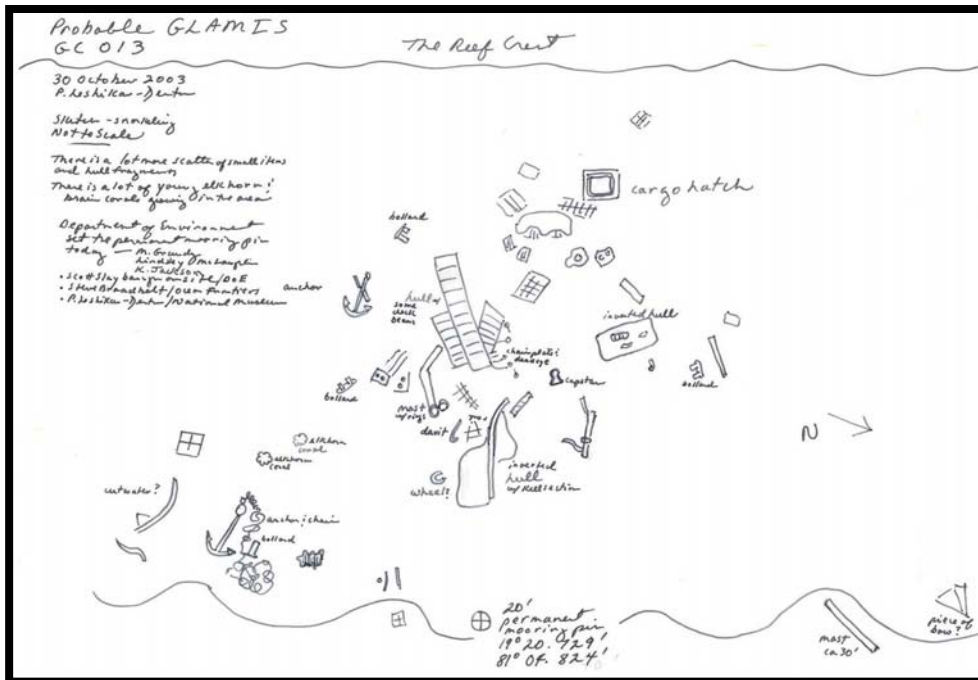 Probable GLAMIS
GC 013
The Reef Crest
30 October 2003
P. Leshikar-Denton
Sketch - snorkeling
Not to Scale
There is a lot more scatter of small items
and hull fragments
There is a lot of young elkhorn &
brain corals growing in the area
Department of Environment
set the permanent mooring pin
today — M. Grundy
Lindsey
K. Jackson
• Scott Slaybaugh on site/DoE
• Steve Broadbelt/Ocean Frontiers
• P. Leshikar-Denton/National Museum
cargo hatch
bollard
anchor
hull w/
some deck
beams
inverted hull
chainplates
damage
bollard
capstan
bollard
mast
w/rings
davit
N
elkhorn
coral
elkhorn
coral
inverted
hull
w/ keel section
wheel?
cutwater?
anchor & chain
bollard
20'
permanent
mooring pin
19° 20. 729'
81° 824'
mast
ca 30'
piece of
bow?